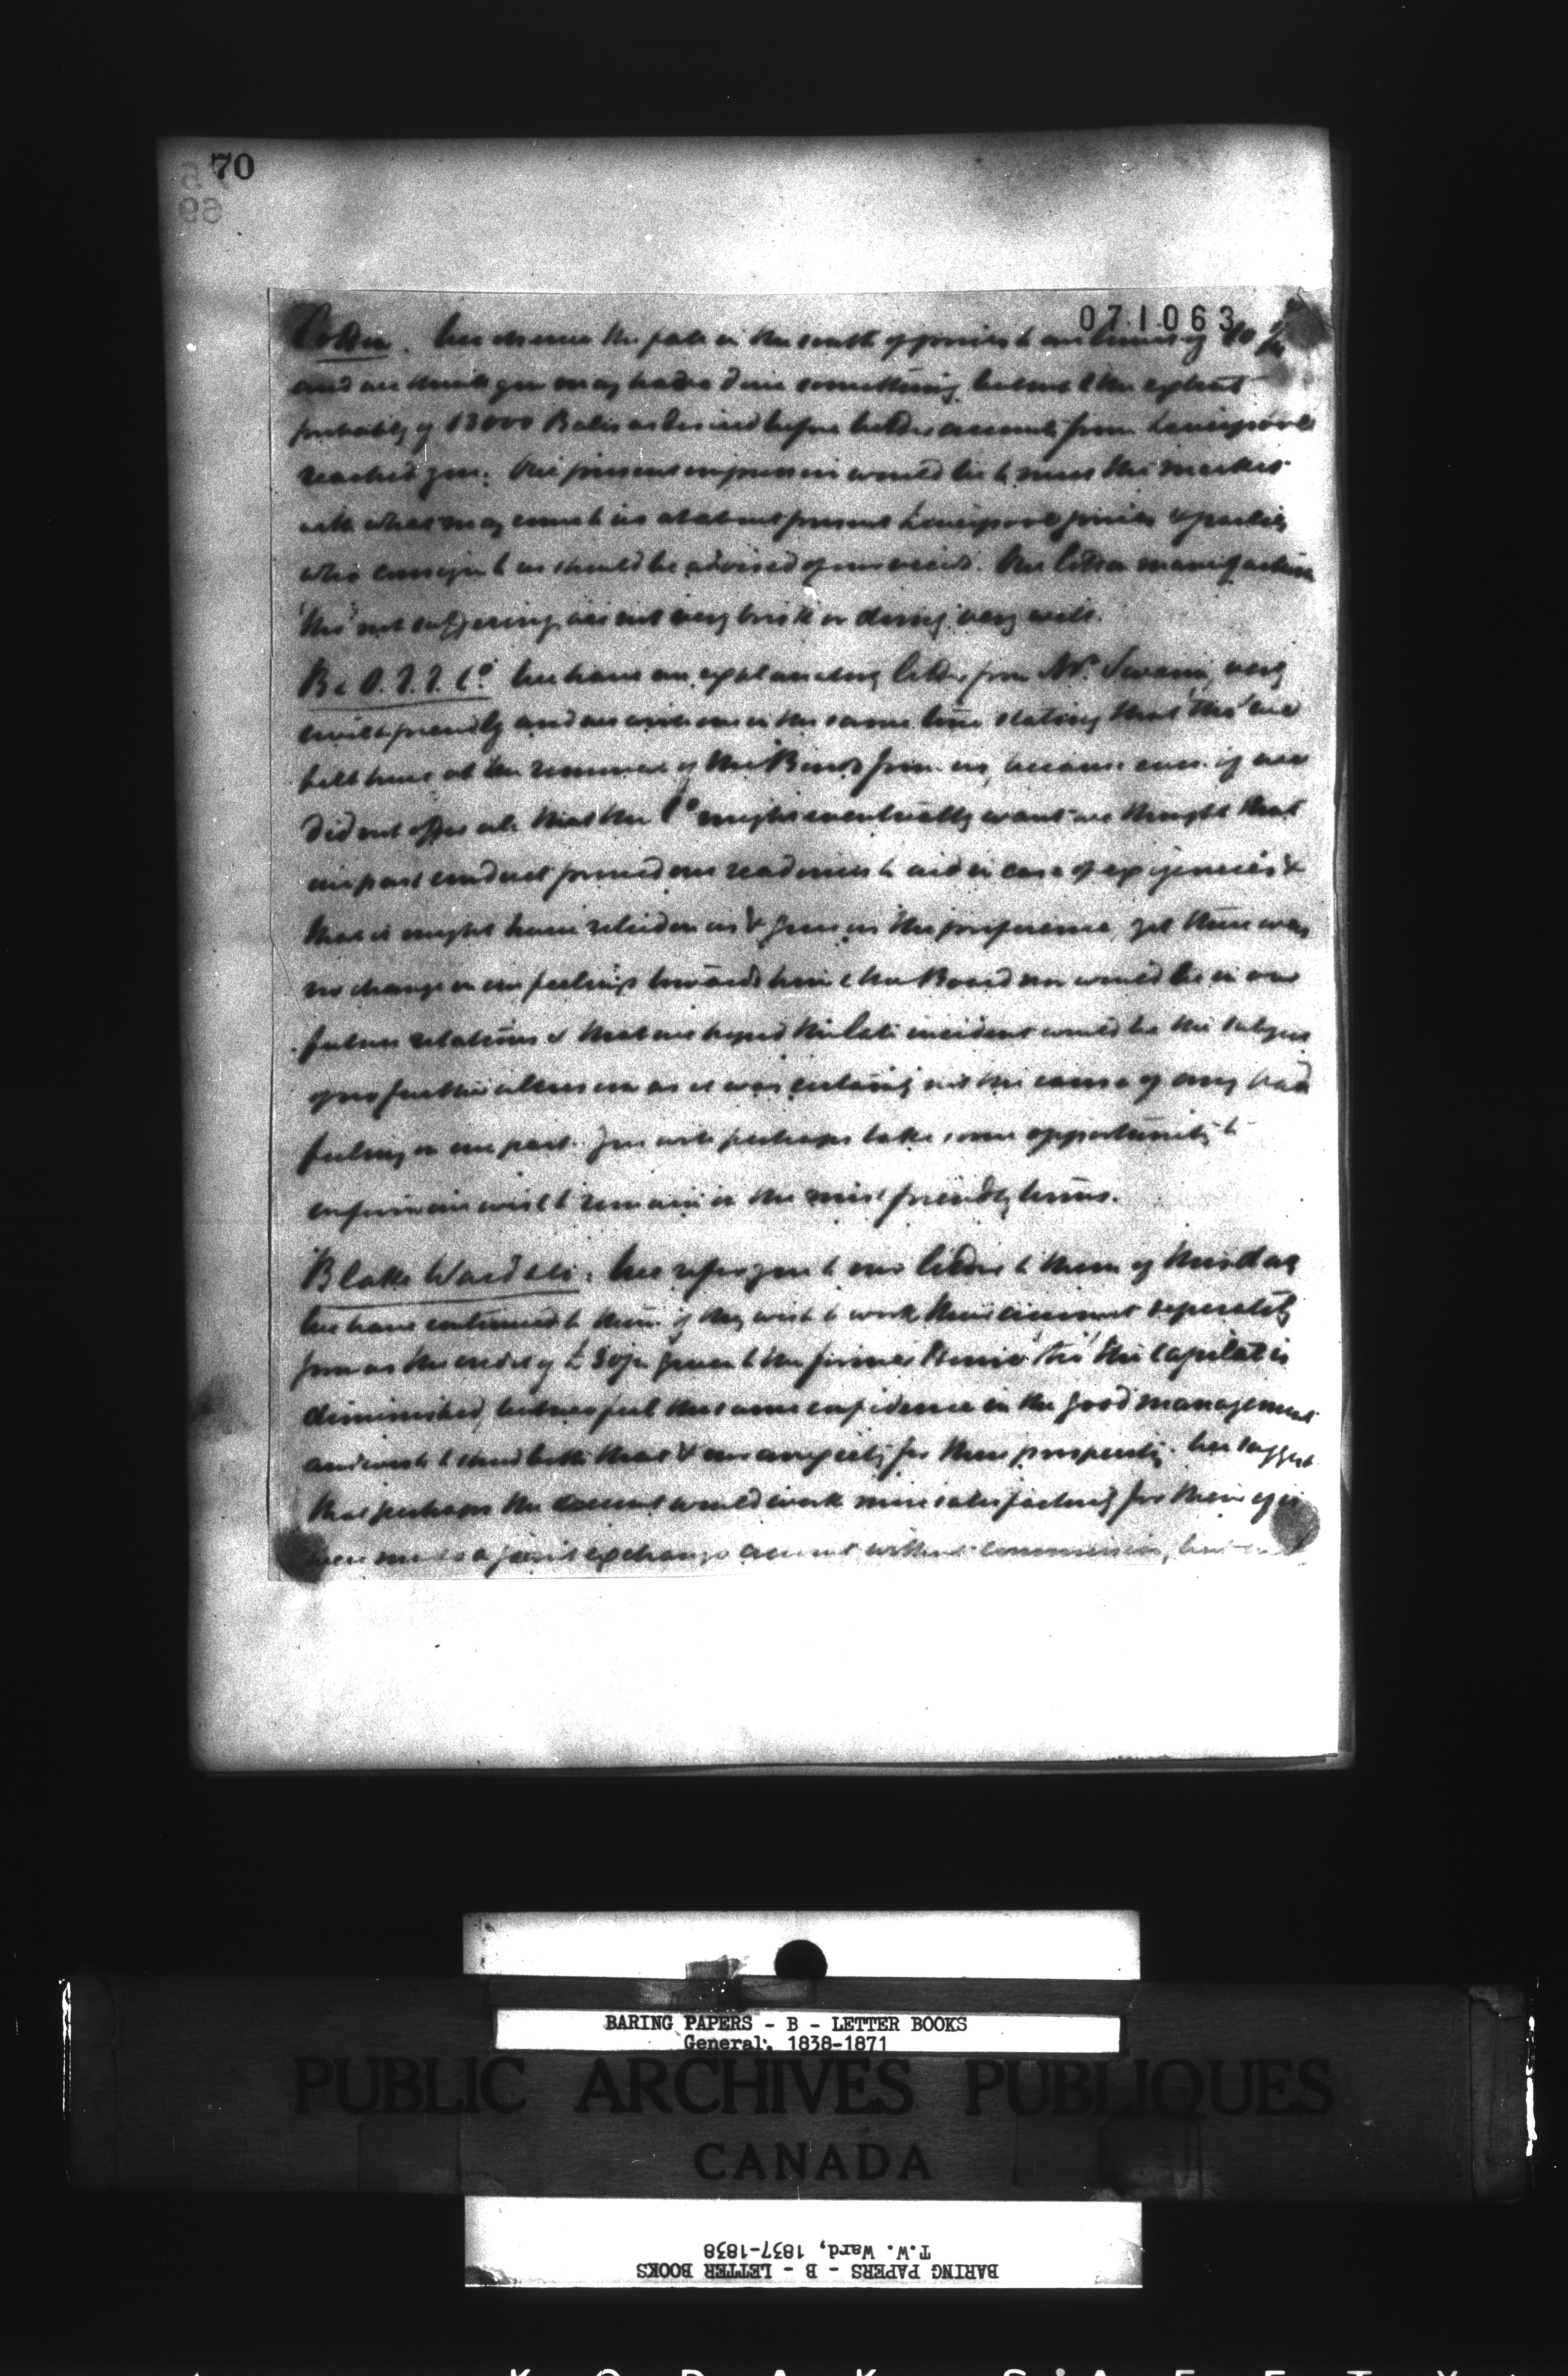 70
69
071063
Cotton. We observe the fall in the south of prices to our limits of
and we think you may have done something but not to the extent
probably of 13000 Bales as desired before better accounts from Liverpool
reached you. Our present impression would be to meet the market
with what may come to us at about present Liverpool prices & parties
who consign to us should be advised of our views. The Cotton manufacture
tho' not suffering is not very brisk or doing very well.
B & O. R. R. Co. We have an explanatory letter from Mr. Swann, very
civil & friendly and we write one in the same tone stating that tho' we
felt hurt at the removal of the Bonds from us, because even if we
did not offer all that the Co might eventually want we thought that
our past conduct proved our readiness to aid in case of exigencies &
that it might have relied on us & given us the preference, yet there was
no change in our feelings towards him & the Board nor would be in our
future relations & that we hoped the late incident would be the subject
of no further allusion as it was certainly not the cause of any bad
feeling on our part. You will perhaps take some opportunity to
our wish to remain on the most friendly terms.
Blake Ward & Co. We refer you to our letter to them of this day
We have continued to them if they wish to work their account separately
from us the credit of £ given to the former tho' the capital is
diminished, but we feel the same confidence in the good management
and wish to shew both that & our anxiety for their prosperity. We suggest
that perhaps the account would work more satisfactorily for them if it
were made a joint exchange account without commission, but
BARING PAPERS - B - LETTER BOOKS
General: 1838-1871
PUBLIC ARCHIVES PUBLIQUES
CANADA
T.W. Ward, 1837-1838
BARING PAPERS - B - LETTER BOOKS